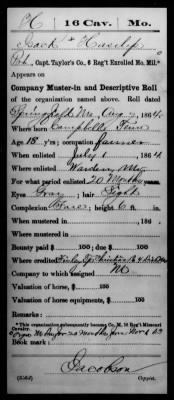 H | 16 Cav. | Mo.
Jack Haselip
Capt. Taylor's Co., 6 Reg't Enrolled Mo. Mil.*
Appears on
Company Muster-in and Descriptive Roll
of the organization named above. Roll dated
Springfield Mo, Aug 7, 1864.
Where born Campbell Tenn
Age 18 y'rs; occupation farmer
When enlisted July 1, 1864
Where enlisted Mo.
For what period enlisted 20 Months
Eyes Gray; hair Light
Complexion Fair; height 6 ft. in.
When mustered in , 186 .
Where mustered in
Bounty paid $ 100; due $ 100
Where credited
Company to which assigned M
Valuation of horse, $ 100
Valuation of horse equipments, $ 100
Remarks:
*This organization subsequently became Co. M, 16 Reg't Missouri Cavalry.
for 20 months from Nov 1 63
Book mark:
Jacobson
Copyist.